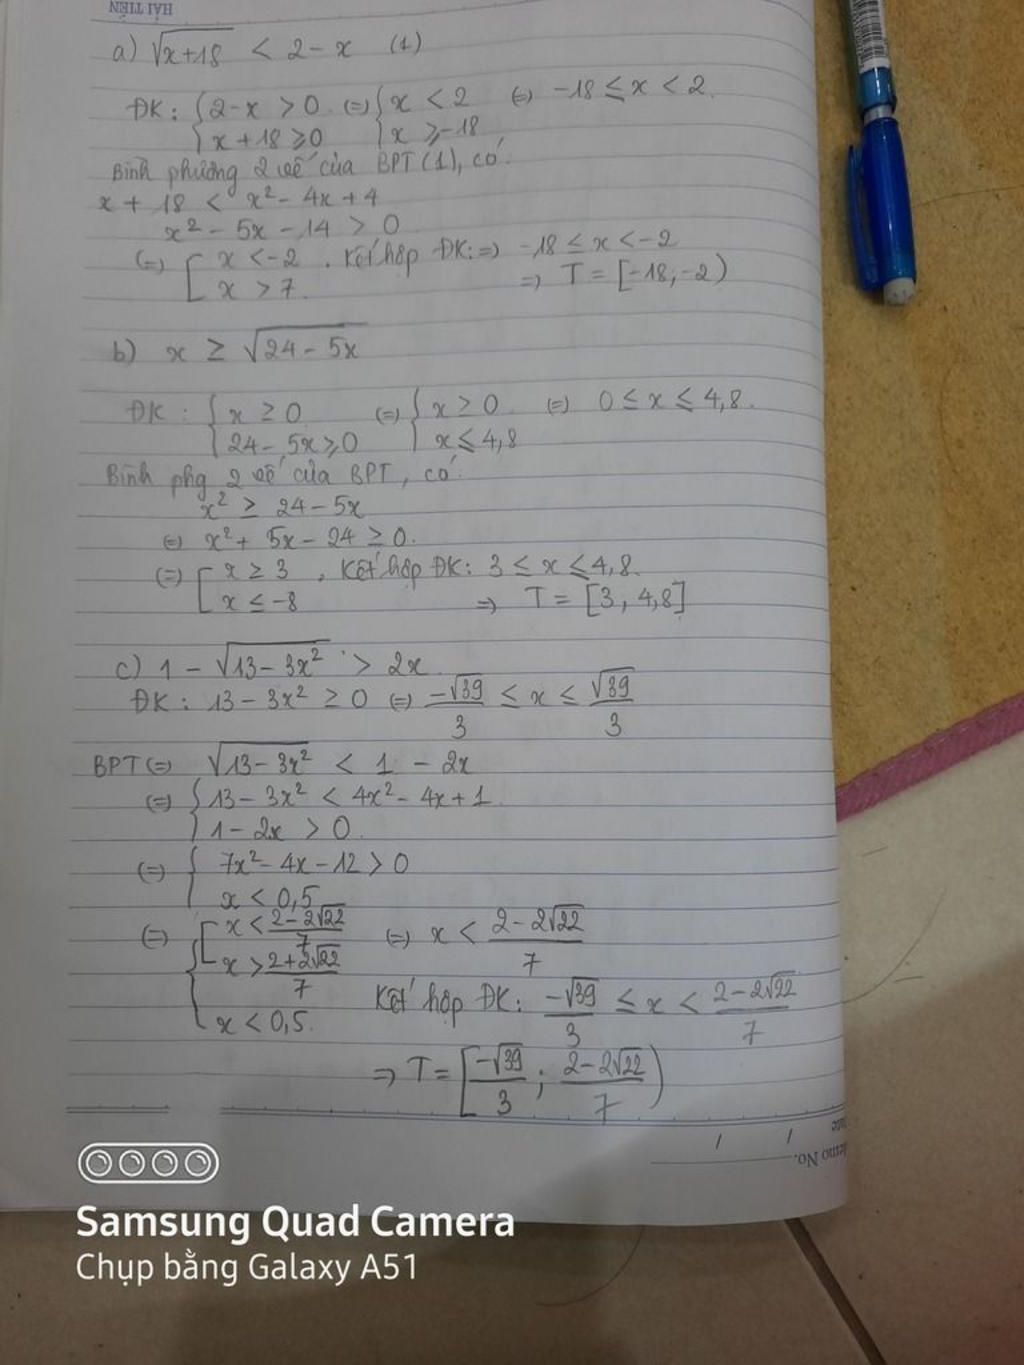 HẢI TIẾN
a) √(x+18) < 2 - x (1)
ĐK: { 2-x > 0 (=) { x < 2 (=) -18 ≤ x < 2.
{ x + 18 ≥ 0 { x ≥ -18
Bình phương 2 vế của BPT (1), có:
x + 18 < x² - 4x + 4
x² - 5x - 14 > 0
(=) [ x < -2 . Kết hợp ĐK: => -18 ≤ x < -2
[ x > 7. => T = [-18; -2)
b) x ≥ √(24 - 5x)
ĐK : { x ≥ 0 (=) { x ≥ 0 (=) 0 ≤ x ≤ 4,8.
{ 24 - 5x ≥ 0 { x ≤ 4,8
Bình phg 2 vế của BPT, có:
x² ≥ 24 - 5x
(=) x² + 5x - 24 ≥ 0.
(=) [ x ≥ 3 , Kết hợp ĐK: 3 ≤ x ≤ 4,8.
[ x ≤ -8 => T = [3, 4,8]
c) 1 - √(13 - 3x²) > 2x
ĐK: 13 - 3x² ≥ 0 (=) -√39/3 ≤ x ≤ √39/3
BPT (=) √(13 - 3x²) < 1 - 2x
(=) { 13 - 3x² < 4x² - 4x + 1
{ 1 - 2x > 0.
(=) { 7x² - 4x - 12 > 0
{ x < 0,5
(=) { [ x < (2 - 2√22)/7 (=) x < (2 - 2√22)/7
[ x > (2 + 2√22)/7
{ x < 0,5. Kết hợp ĐK: -√39/3 ≤ x < (2 - 2√22)/7
=> T = [-√39/3 ; (2 - 2√22)/7)
/ /
No.
Samsung Quad Camera
Chụp bằng Galaxy A51